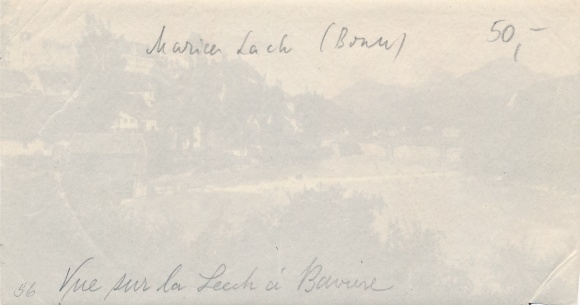 Marien Lach (Bonn) 50,-
56 Vue sur la Leech à Baviere